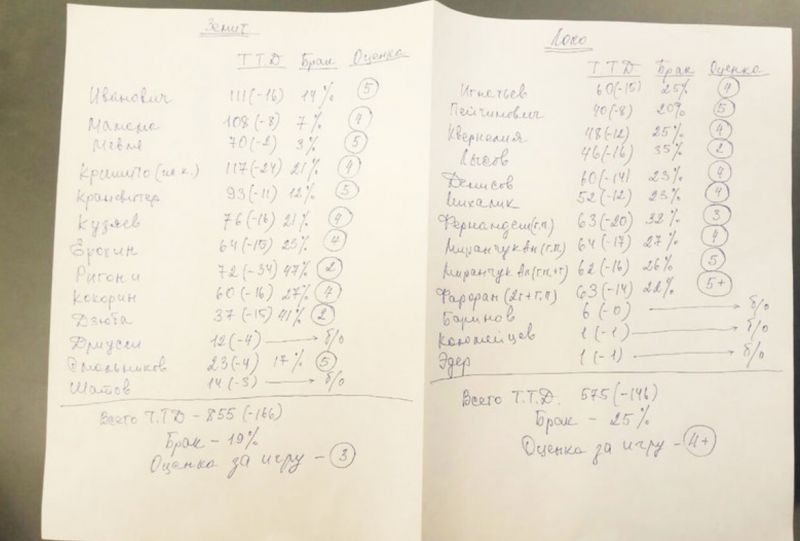 Зенит
ТТД Брак Оценка
Иванович 111(-16) 14% 5
Маммана 108(-8) 7% 4
Мевля 70(-2) 3% 5
Кришито 117(-24) 21% 4
Краневиттер 93(-11) 12% 5
Кузяев 76(-16) 21% 4
Ерохин 64(-15) 23% 4
Ригони 72(-34) 47% 2
Кокорин 60(-16) 27% 4
Дзюба 37(-15) 41% 2
Дриусси 12(-4) → б/о
Смольников 23(-4) 17% 5
Шатов 14(-3) → б/о
Всего Т.Т.Д - 855(-166)
Брак - 19%
Оценка за игру - 3
Локо
ТТД Брак Оценка
Игнатьев 60(-15) 25% 4
Пейчинович 40(-8) 20% 5
Кверквелия 48(-12) 25% 4
Лысов 46(-16) 35% 2
Денисов 60(-14) 23% 4
Михалик 52(-12) 23% 4
Фернандеш(г.п.) 63(-20) 32% 3
Миранчук Ан(г.п.) 64(-17) 27% 4
Миранчук Ал(г.п+г) 62(-16) 26% 5
Фарфан(2г+г.п) 63(-14) 22% 5+
Баринов 6(-0) → б/о
Коломейцев 1(-1) → б/о
Эдер 1(-1) → б/о
Всего Т.Т.Д. 575(-146)
Брак - 25%
Оценка за игру - 4+